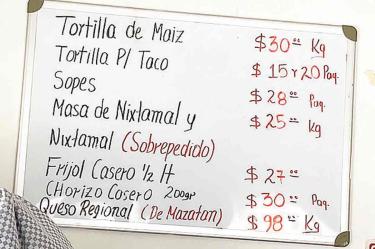 Tortilla de Maiz $30°° Kg
Tortilla P/ Taco $15 y 20 Paq.
Sopes $28°° Paq.
Masa de Nixtamal y $25°° Kg
Nixtamal (Sobrepedido)
Frijol Casero ½ lt $27°°
CHorizo Casero 200gr $30°° Paq.
Queso Regional (De Mazatan) $98°° Kg